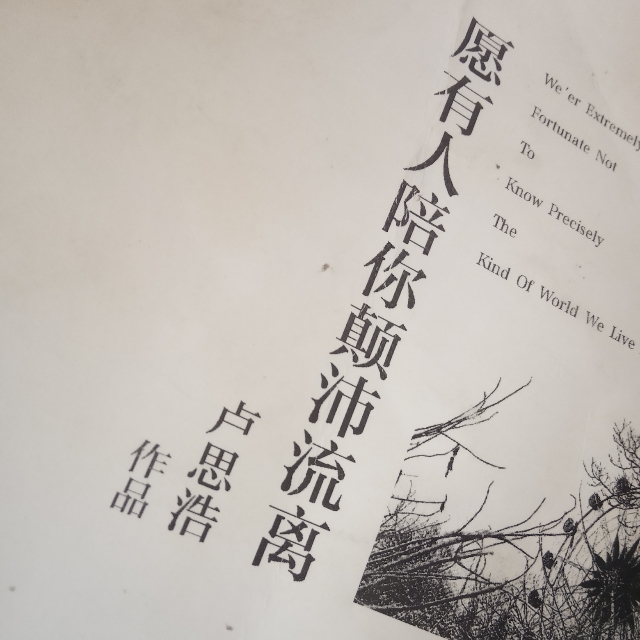 愿有人陪你颠沛流离
卢思浩
作品
We'er Extremely
Fortunate Not
To
Know Precisely
The
Kind Of World We Live